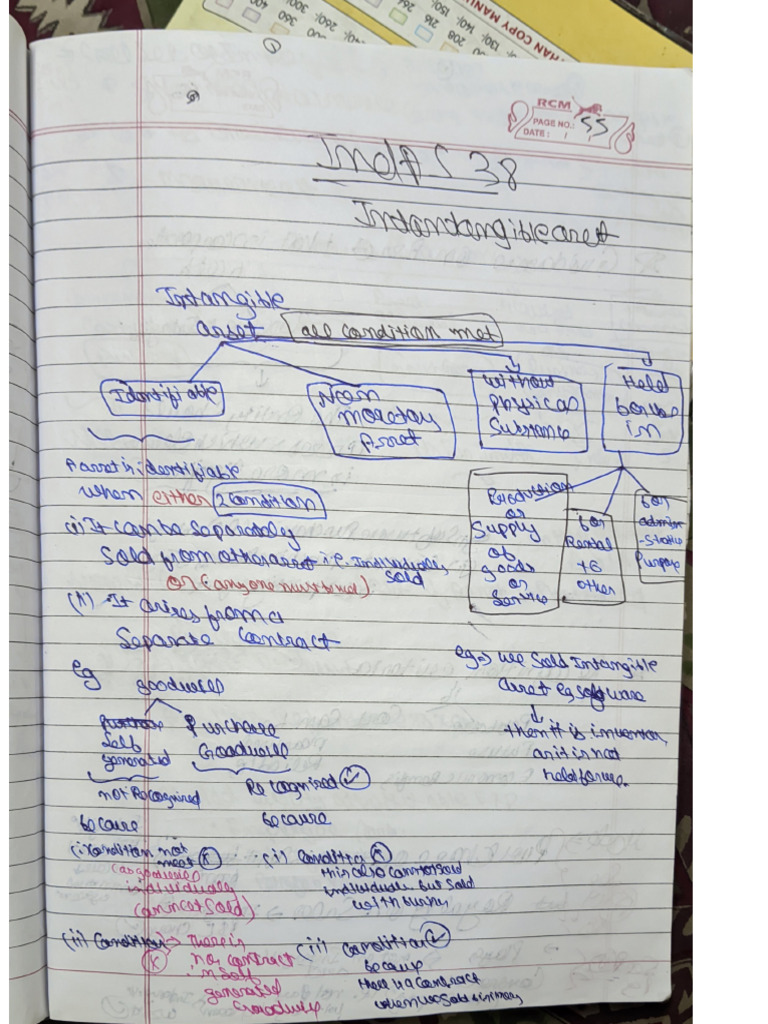 THAN COPY MANU
RCM
PAGE NO.: 55
DATE: /
IndAS 38
Intangible
asset all condition met
Identifiable
Non
monetary
Asset
without
Physical
Substance
Held
for use
in
A asset is identifiable
when either 2 condition
(i) It can be separately
Sold from other asset i.e. Individually
sold
or (any one must be met)
(ii) It arises from a
Separate Contract
Production
or
Supply
of
goods
or
Service
for
Rental
to
other
for
admin
-strative
Purpose
eg goodwill
Self
generated
Purchase
Goodwill
not Recognised
Recognised ✓
because
because
(i) condition not
meet x
(as goodwill
individually
can not sold)
(i) condition x
this also can not sold
individually but sold
with business
(ii) condition x
There is
no contract
in self
generated
Goodwill
(ii) condition ✓
because
there is a contract
eg → we sold Intangible
asset eg software
↓
then it is inventory
as it is not
held for use.